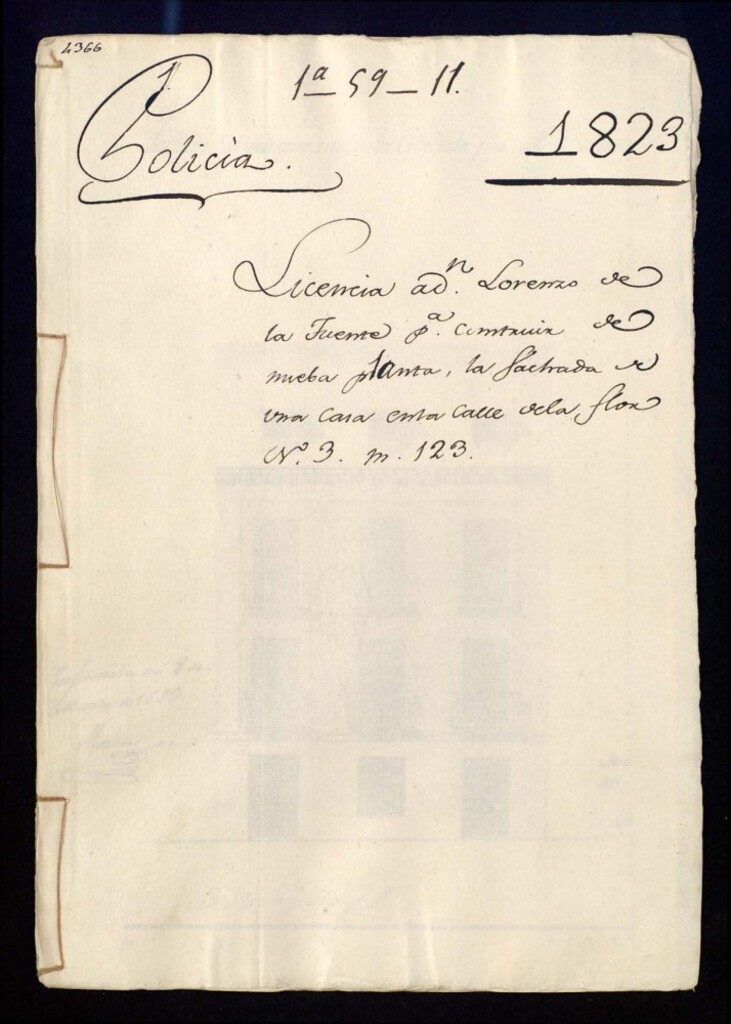 4366
1ª 59 — 11.
Policía.
1823
Licencia a dⁿ. Lorenzo de
la Fuente pª. construir de
nueba planta, la fachada de
una casa enla Calle dela flor
Nº. 3. m. 123.